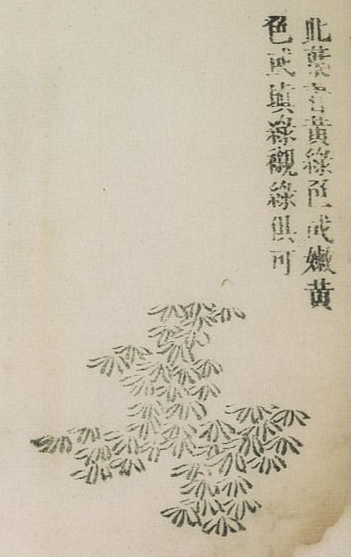 此葉宜黃綠色或嫩黃
色或填綠襯綠俱可